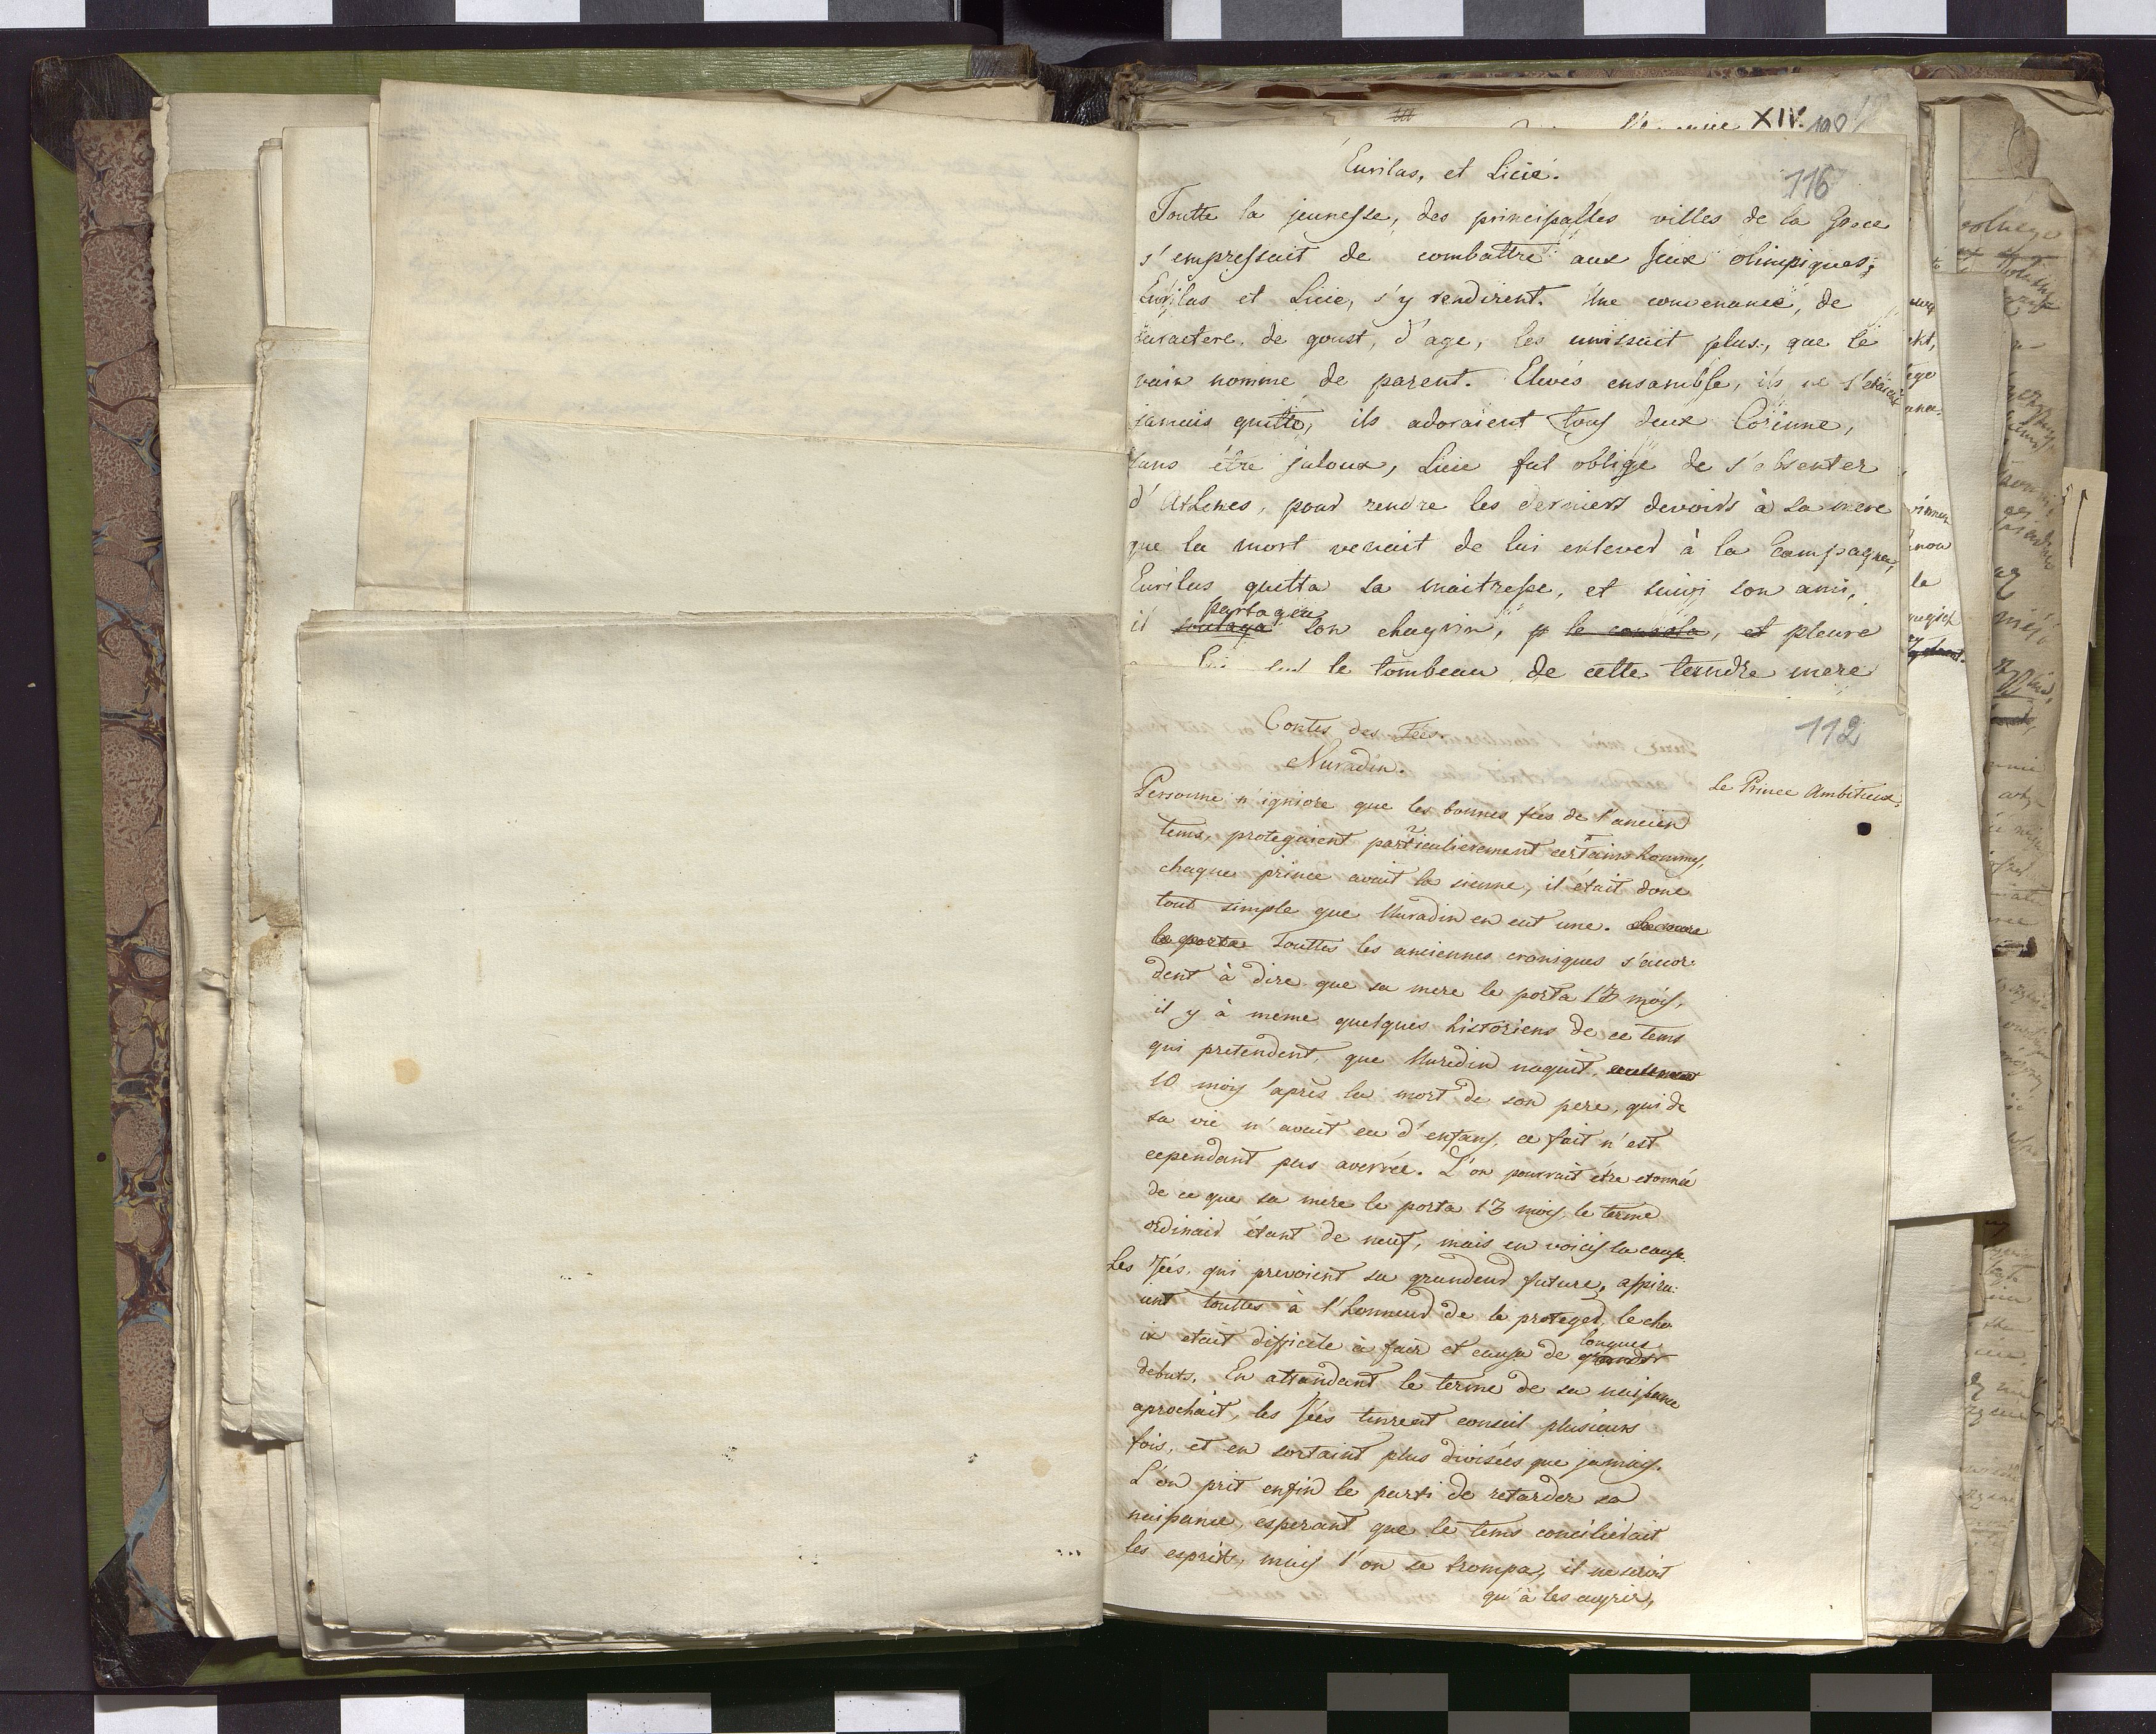 XIV.
198
Eurilas, et Licie.
116
Toutte la jeunesse, des principalles villes de la Grece
s'empressait de combattre aux Jeux olimpiques;
Eurilas et Licie, s'y rendirent. Une convenance, de
caractere, de goust, d'age, les unissait plus, que le
vain nomme de parent. Elevés ensamble, ils ne s'étaient
jamais quitté, ils adoraient tous deux Corinne,
sans être jaloux, Licie fut obligé de s'absenter
d'Athenes, pour rendre les derniers devoirs à sa mere
que la mort venait de lui enlever à la Campagne,
Eurilas quitta sa maitresse, et suivi son ami,
partagea
il soulaga son chagrin, le consola, et pleure
lui sur le tombeau de cette tendre mere
Contes des Fées.
112
Nuradin.
Le Prince Ambitieux.
Personne n'igniore que les bonnes fées de l'ancien
tems, protegaient particulierement certains hommes,
chaque prince avait la sienne, il était donc
tout simple que Nuradin en eut une.
la porta Touttes les anciennes croniques s'accor
dent à dire que sa mere le porta 13 mois,
il y à meme quelques historiens de ce tems
qui pretendent, que Nuredin naquit, seulement
10 mois après la mort de son pere, qui de
sa vie n'avait eu d'enfans, ce fait n'est
cependant pas averrée. L'on pourrait étre etonnée
de ce que sa mere le porta 13 mois, le terme
ordinair étant de neuf, mais en voicis la cause.
Les Fées, qui prevoient sa grandeur future, aspira:
ent touttes à l'honneur de le proteger, le cho
longues
ix etait difficile à fair et causa de grands
debats. En attandant le terme de sa naissance
aprochait, les Fées tinrent conseil plusieurs
fois, et en sortaint plus divisées que jamais.
L'on prit enfin le parti de retarder sa
naissance, esperant que le tems concilierait
les esprits, mais l'on se trompa, il ne servit
qu'à les aigrir,